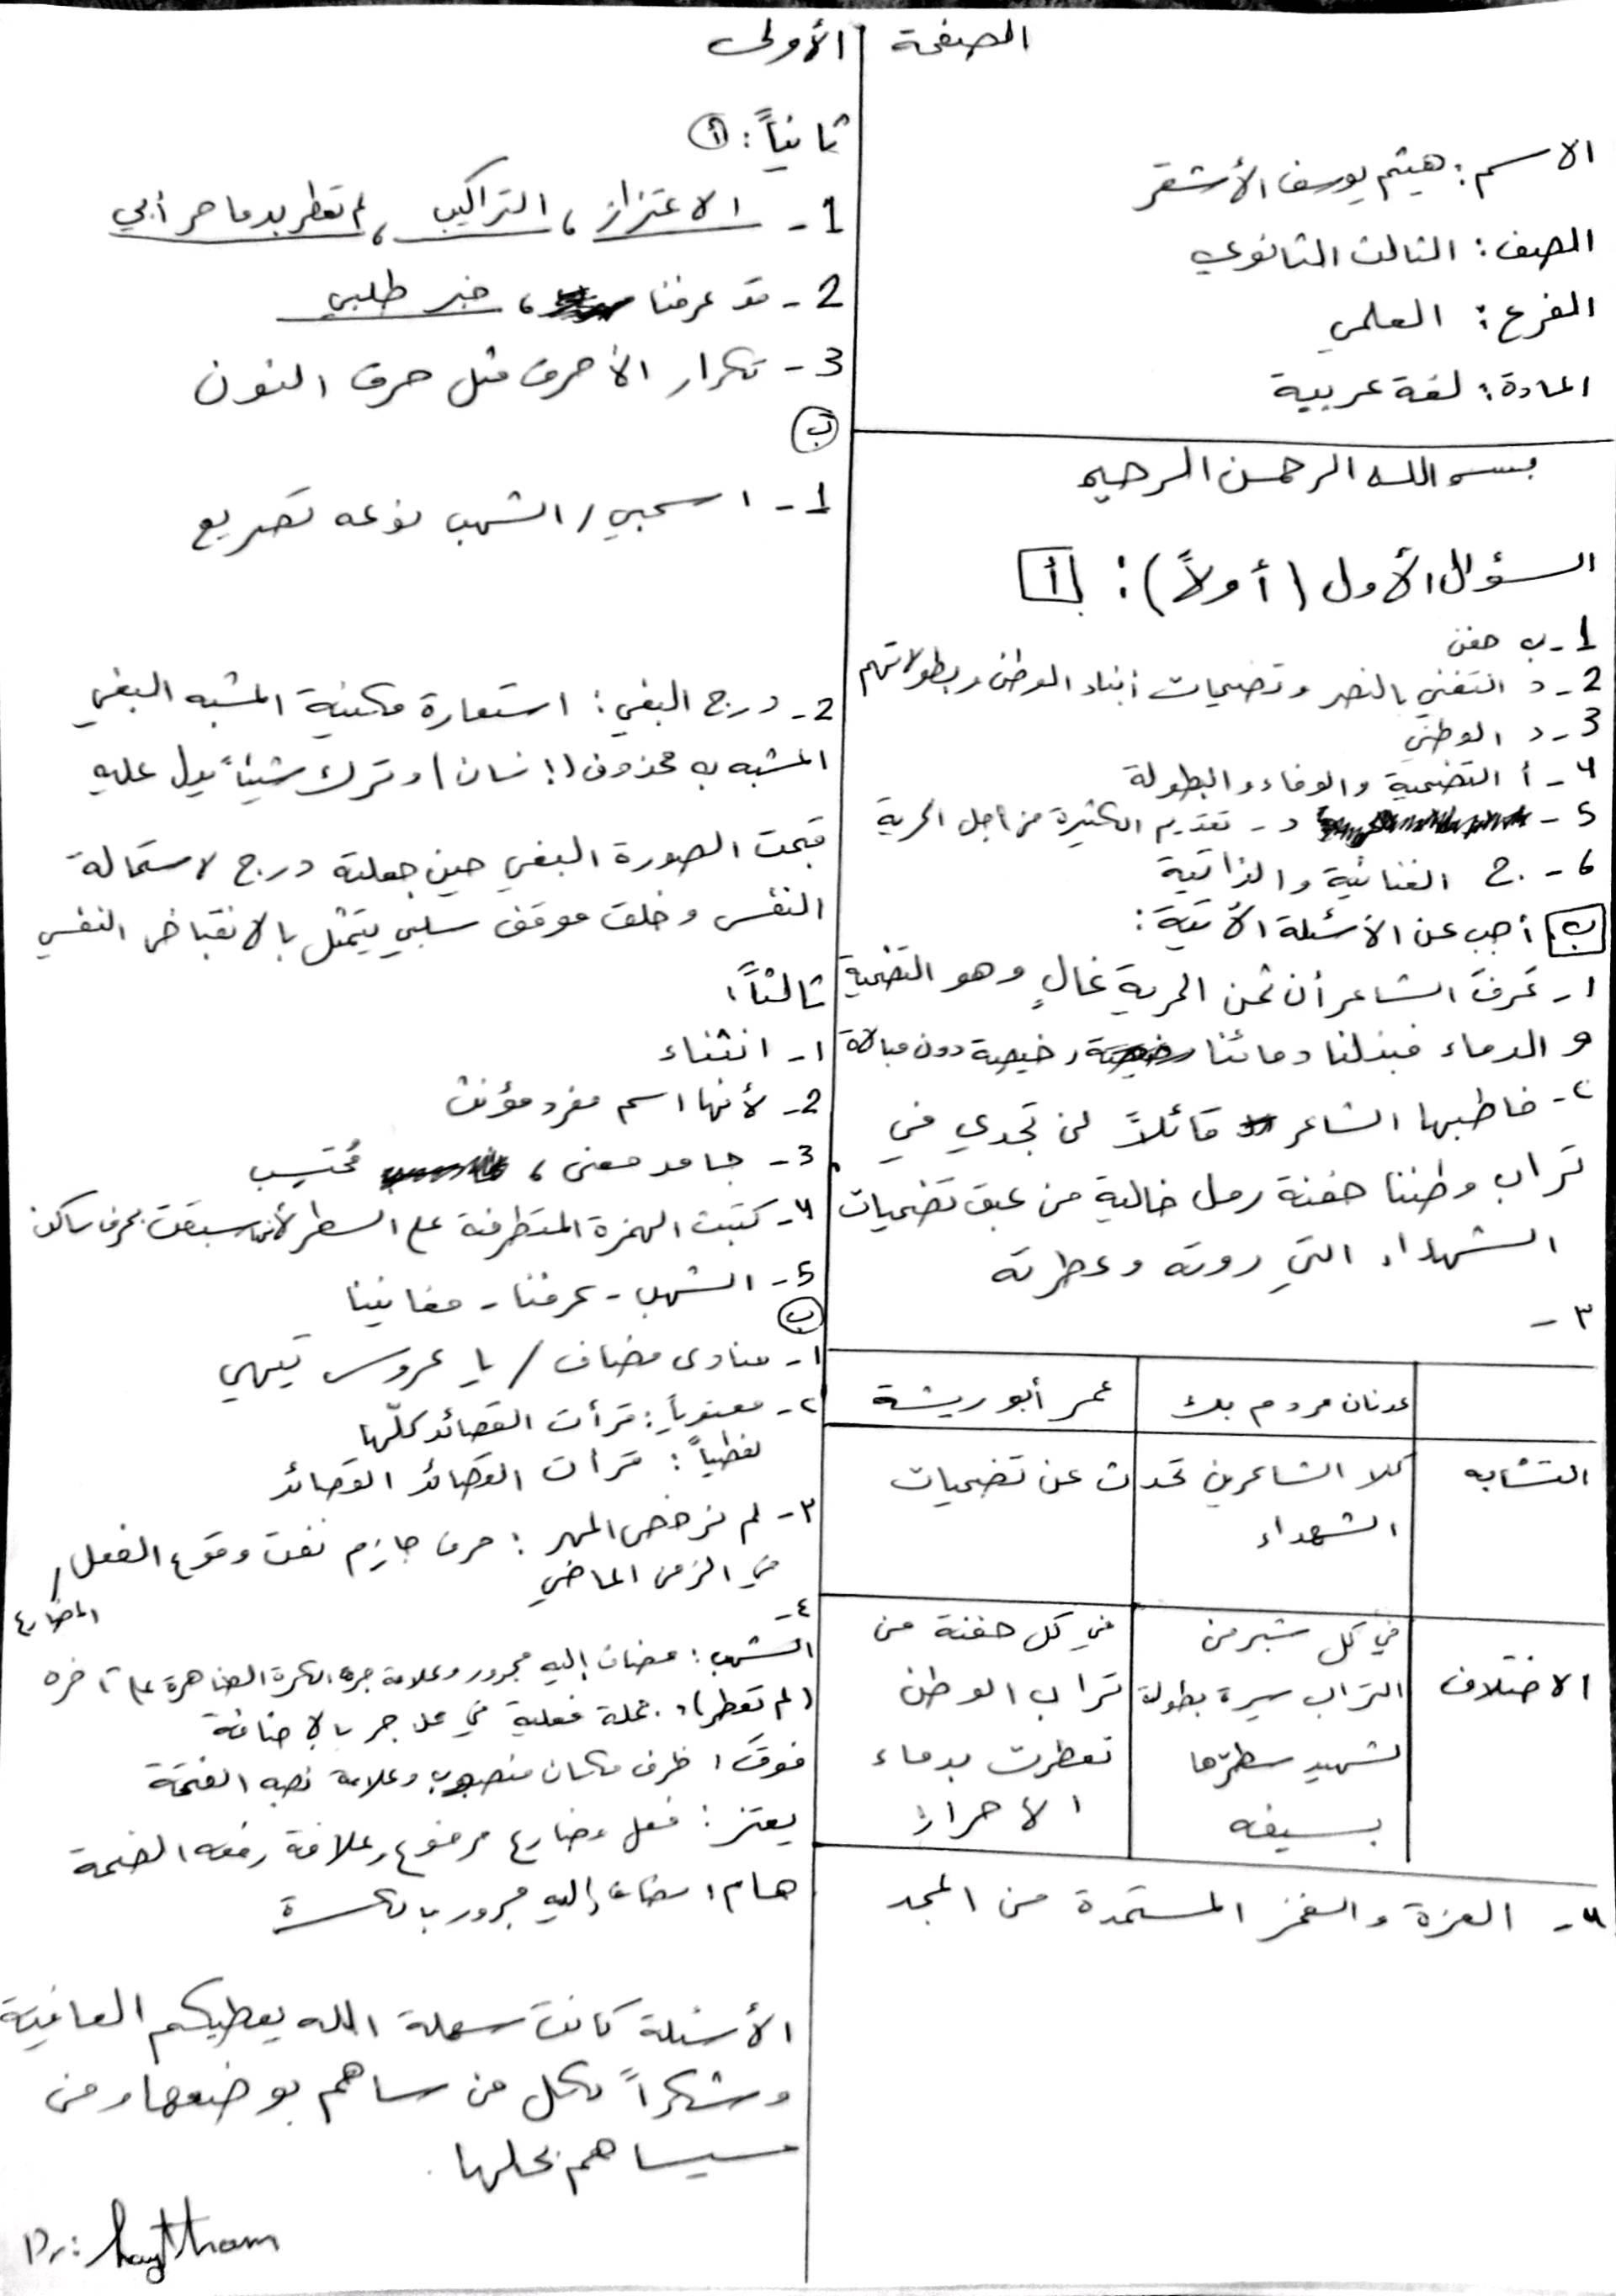 الصفحة الأولى
الاسم: هيثم يوسف الأشقر
الصف: الثالث الثانوي
الفرع: العلمي
المادة: لغة عربية
بسم الله الرحمن الرحيم
السؤال الأول (أولاً): أ
1- ب حفن
2- د التغني بالنصر وتضحيات أبناء الوطن وبطولاتهم
3- د الوطني
4- أ التضحية والوفاء والبطولة
5- د- تقديم الكثيرة من أجل الحرية
6- ج الغنائية والذاتية
ب أجب عن الأسئلة الآتية:
1- عَرفَ الشاعر أن ثمن الحرية غالٍ وهو التضحية
و الدماء فبذلنا دمائنا رخيصة دون مبالاة
2- خاطبها الشاعر قائلاً لن تجدي في
تراب وطننا حفنة رمل خالية من عبق تضحيات
الشهداء التي روته وعطرته
٣-
عدنان مردم بك
عمر أبو ريشة
التشابه
كلا الشاعرين تحدث عن تضحيات
الشهداء
الاختلاف
في كل شبر من
التراب سيرة بطولة
لشهيد سطرّها
بسيفه
في كل حفنة من
تراب الوطن
تعطرت بدماء
الأحرار
4- العزة والفخر المستمدة من المجد
ثانياً: أ
1- الاعتزاز، التراكيب، لم تعطر بدما حر أبي
2- قد عرفنا، خبر طلبي
3- تكرار الأحرف مثل حرف النون
ب
1- اسحبي / الشهب نوعه تصريع
2- درج البغي: استعارة مكنية المشبه البغي
المشبه به محذوف (إنسان) وترك شيئاً يدل عليه
قبحت الصورة البغي حين جعلته درج لاستمالة
النفس وخلق موقف سلبي يتمثل بالانقباض النفسي
ثالثاً:
1- انثناء
2- لأنها اسم مفرد مؤنث
3- جامد معنى، مُحتسِب
4- كتبت الهمزة المتطرفة على السطر لأنها سبقت بحرف ساكن
5- الشهب - عرفنا - مغانينا
ب
1- منادى مضاف / يا عروس تيهي
2- معنوياً: قرأت القصائد كلّها
لفظياً: قرأت القصائد القصائد
٣- لم نرخص المهر: حرف جازم نفت وقوع الفعل /
المضارع
في الزمن الماضي
٤-
الشهب: مضاف إليه مجرور وعلامة جره الكسرة الظاهرة على آخره
(لم تعطر): جملة فعلية في محل جر بالإضافة
فوقَ: ظرف مكان منصوب وعلامة نصبه الفتحة
يعتز: فعل مضارع مرفوع وعلامة رفعه الضمة
هام: مضاف إليه مجرور بالكسرة
الأسئلة كانت سهلة الله يعطيكم العافية
وشكراً لكل من ساهم بوضعها ومن
سيساهم بحلها.
Dr: haytham